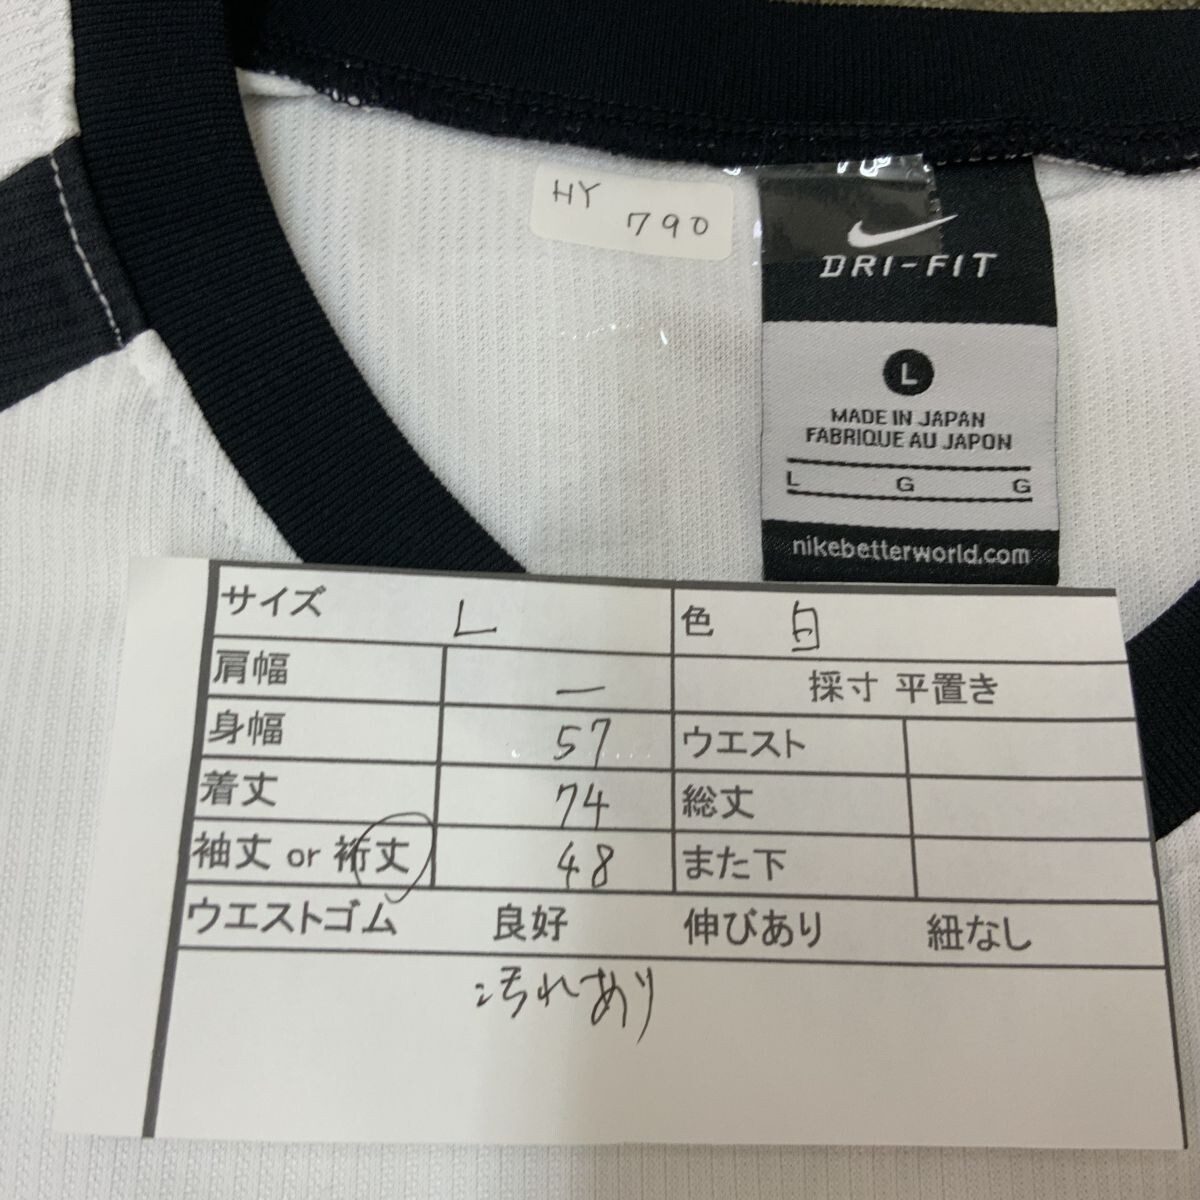 HY
790
DRI-FIT
L
MADE IN JAPAN
FABRIQUE AU JAPON
L G G
nikebetterworld.com
サイズ L 色 白
肩幅 ー 採寸 平置き
身幅 57 ウエスト
着丈 74 総丈
袖丈 or 裄丈 48 また下
ウエストゴム 良好 伸びあり 紐なし
汚れあり